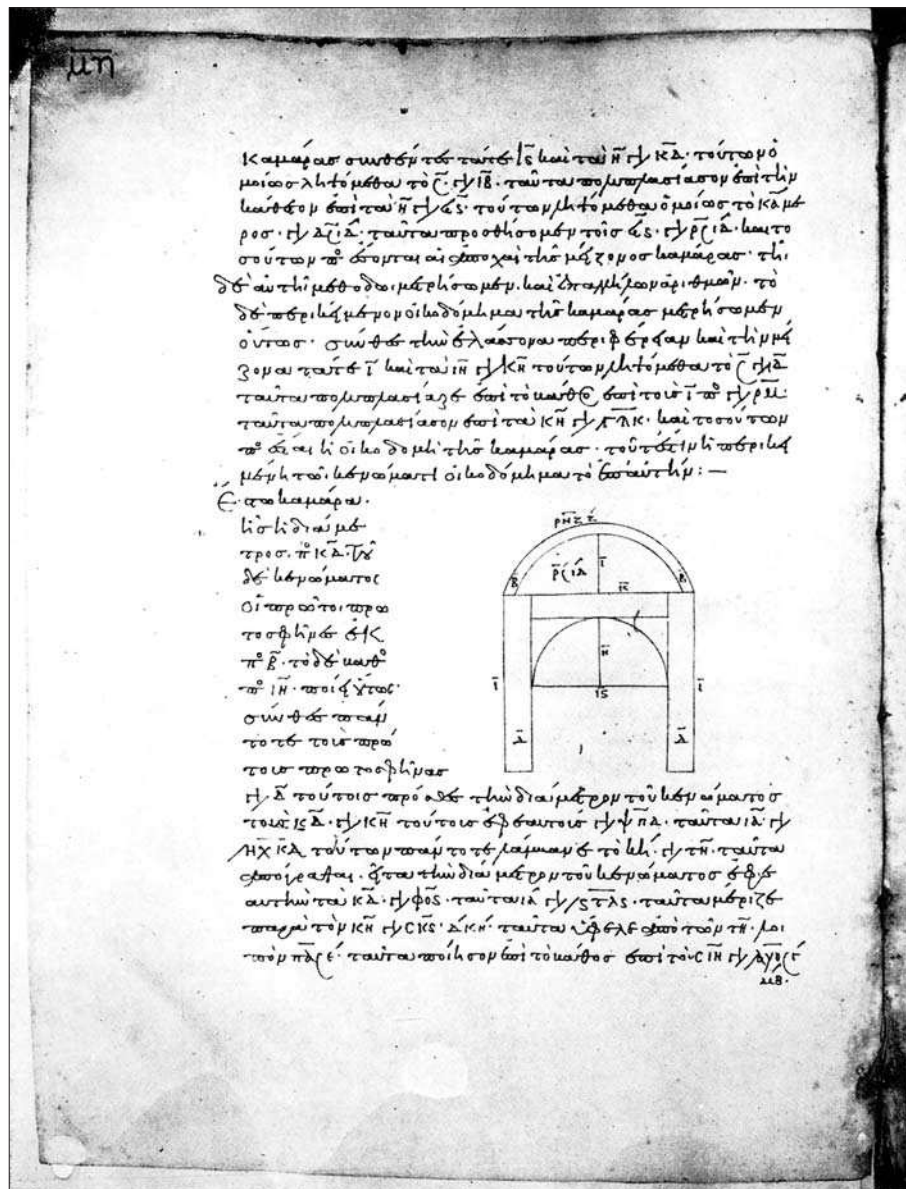 μη
καμάρας συνθέντες τά τε ιϛ καὶ τὰ η γι/ κδ. τούτων ὁ
μοίως ληψόμεθα τὸ ϛ. γι/ ιβ. ταῦτα πολυπλασίασον ἐπὶ τὴν
κάθετον ἐπὶ τὰ η γι/ ϙϛ. τούτων ληψόμεθα ὁμοίως τὸ κα με
ρος. γι/ δ ιδ. ταῦτα προσθήσομεν τοῖς ϙϛ. γι/ ρ ιδ. καὶ το
σούτων πο ἔσονται αἱ ἀποχαὶ τῆς μείζονος καμάρας. τῆι
δὲ αὐτῆι μεθόδωι μετρήσωμεν. καὶ ἐπ' ἄλλων ἀριθμῶν. τὸ
δὲ περικείμενον οἰκοδόμημα τῆς καμάρας μετρήσωμεν
οὕτως. σύνθες τὴν ἐλάσσονα περιφέρειαν καὶ τὴν μεί
ζονα τά τε ι καὶ τὰ ιη γι/ κη τούτων ληψόμεθα τὸ γι/ ιδ
ταῦτα πολυπλασίαζε ἐπὶ τὸ κάθος ἐπὶ τοῖς ι πο γι/ ρμ.
ταῦτα πολυπλασίασον ἐπὶ τὰ κη γι/ κ. καὶ τοσούτων
πο ἔσται ἡ οἰκοδομὴ τῆς καμάρας. τουτέστιν ἡ περικει
μένη τῶι κενώματι οἰκοδόμημα τὸ ἐπ' αὐτήν :—
Ἔστω καμάρα.
ἧς ἡ διάμε
τρος. πο κδ. τοῦ
δὲ κενώματος
οἱ πρῶτοι πρω
τοσφῆνες ἐκ
πο β. τὸ δὲ κάθο
πο ιη. ποίει οὕτως.
σύνθες πάν
τοτε τοῖς πρώ
τοις πρωτοσφῆνας
γι/ δ τούτοις πρόσθες τὴν διάμετρον τοῦ κενώματος
τοὺς κδ. γι/ κη τούτοις ἐφ' ἑαυτοὺς γι/ ψπδ. ταῦτα ια γι/
ηχκδ τούτων πάντοτε λάμβανε τὸ κη. γι/ τη. ταῦτα
ἀπόγραψαι. εἶτα τὴν διάμετρον τοῦ κενώματος ἐφ' ἑ
αυτὴν τὰ κδ. γι/ φοϛ. ταῦτα ια γι/ ϛτλϛ. ταῦτα μέριζε
παρὰ τὸν κη γι/ σκϛ. ταῦτα ὕφελε ἀπὸ τῶν τη. λοι
πὸν πα. ταῦτα ποίησον ἐπὶ τὸ κάθος ἐπὶ τοὺς ιη γι/
ρη
β
ρ ιδ
ι
β
κ
ι
η
ιϛ
ι
δ
δ